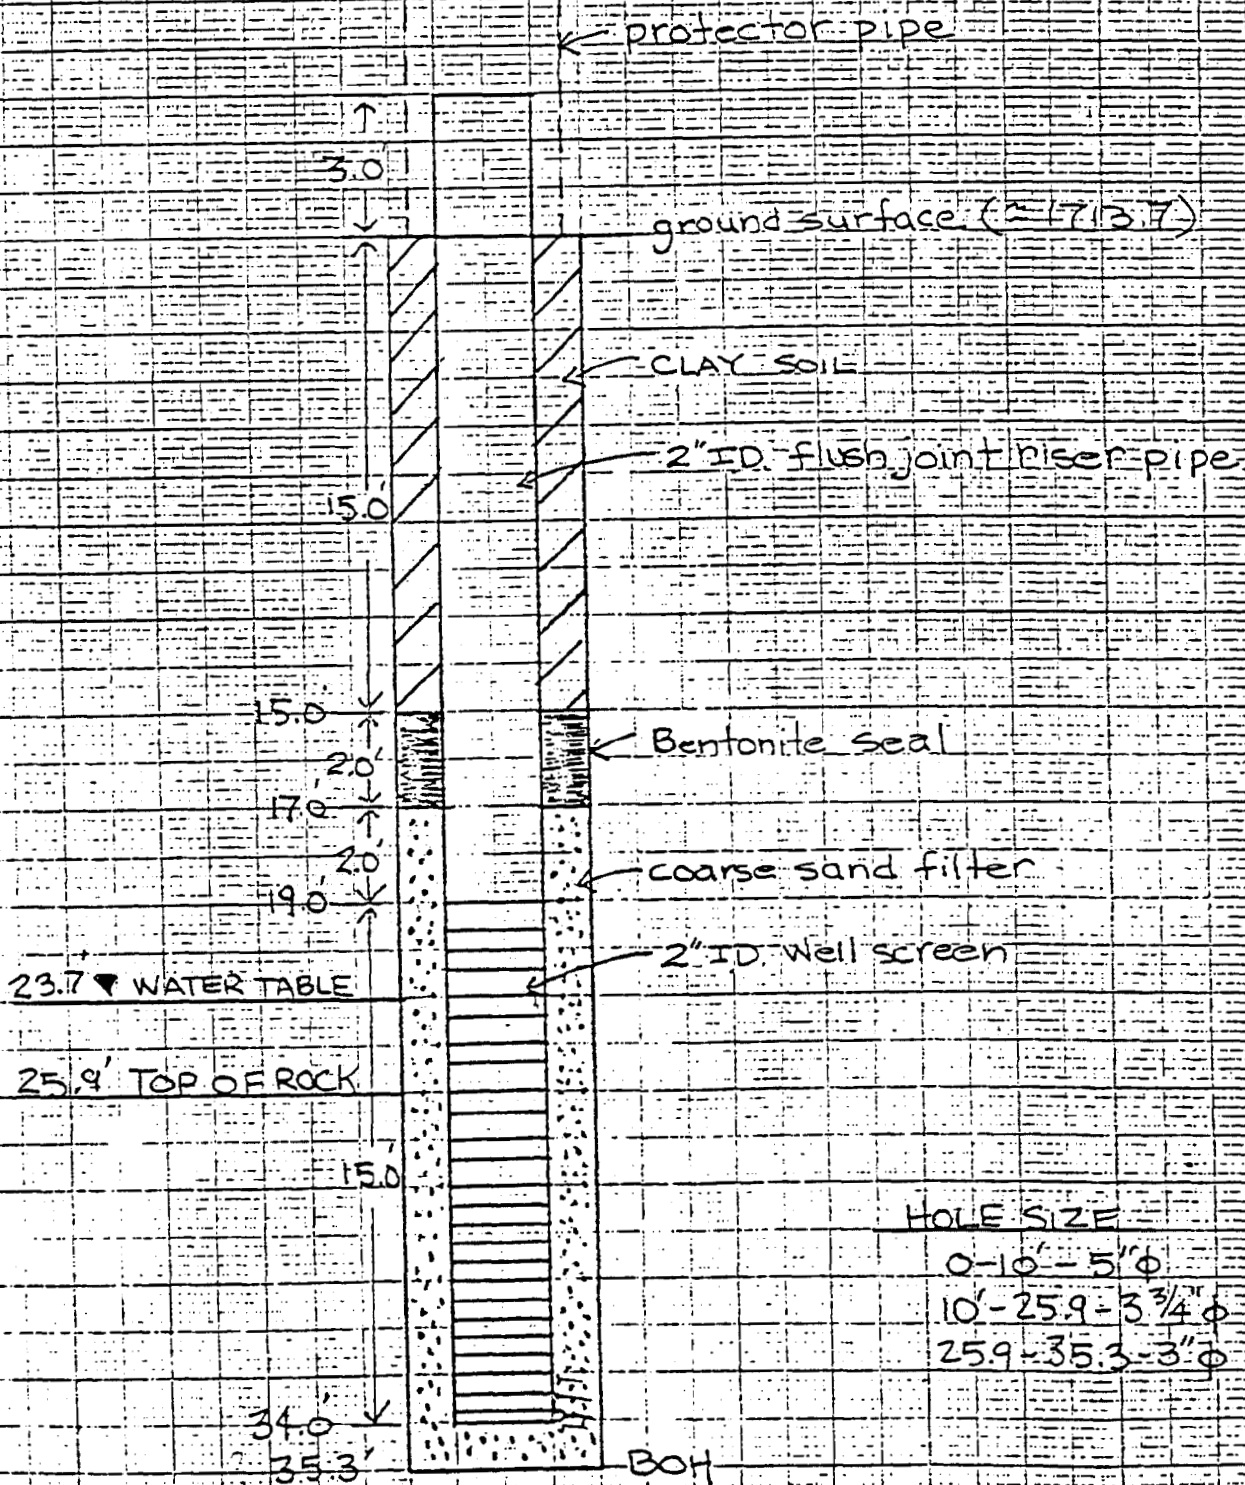 protector pipe
3.0'
ground surface (≈1713.7)
CLAY SOIL
2" I.D. flush joint riser pipe
15.0'
15.0'
Bentonite seal
2.0'
17.0'
2.0'
coarse sand filter
19.0'
2" I.D. Well screen
23.7' ▼ WATER TABLE
25.9' TOP OF ROCK
15.0'
HOLE SIZE
0-10' - 5"ϕ
10'-25.9 - 3 3/4"ϕ
25.9-35.3-3"ϕ
34.0'
35.3'
BOH